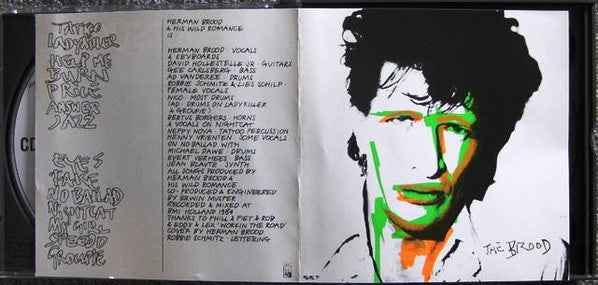 CD
TATTOO
LADYKILLER
HELP ME
BURN
PRICE
ANSWER
JAZZ
EYES
FAKE
NO BALLAD
NIGHTCAT
MY GIRL
SPEEDO
GROUPIE
HERMAN BROOD
& HIS WILD ROMANCE
IS:
HERMAN BROOD · VOCALS
& KEYBOARDS
DAVID HOLLESTELLE JR · GUITARS
GEE CARLSBERG · BASS
AD VANDEREE · DRUMS
ROBBIE SCHMITZ & LIES SCHILP ·
FEMALE VOCALS
NICO · MOST DRUMS
TAD · DRUMS ON LADYKILLER
& GROUPIE)
BERTUS BORGERS HORNS
& VOCALS ON NIGHTCAT
NEPPY NOYA · TATTOO PERCUSSION
HENNY VRIENTEN · SOME VOCALS
ON NO BALLAD WITH
MICHAEL DAWE DRUMS
EVERT VERHEES BASS
JEAN BLAUTE SYNTH
ALL SONGS PRODUCED BY
HERMAN BROOD &
HIS WILD ROMANCE
CO-PRODUCED & ENGINEERED
BY ERWIN MUSPER
RECORDED & MIXED AT
BMI HOLLAND 1984
THANKS TO PHILL & PIET & ROB
& EDDY & LEX 'WORKIN THE ROAD'
COVER BY HERMAN BROOD
ROBBIE SCHMITZ · LETTERING
THE BROOD